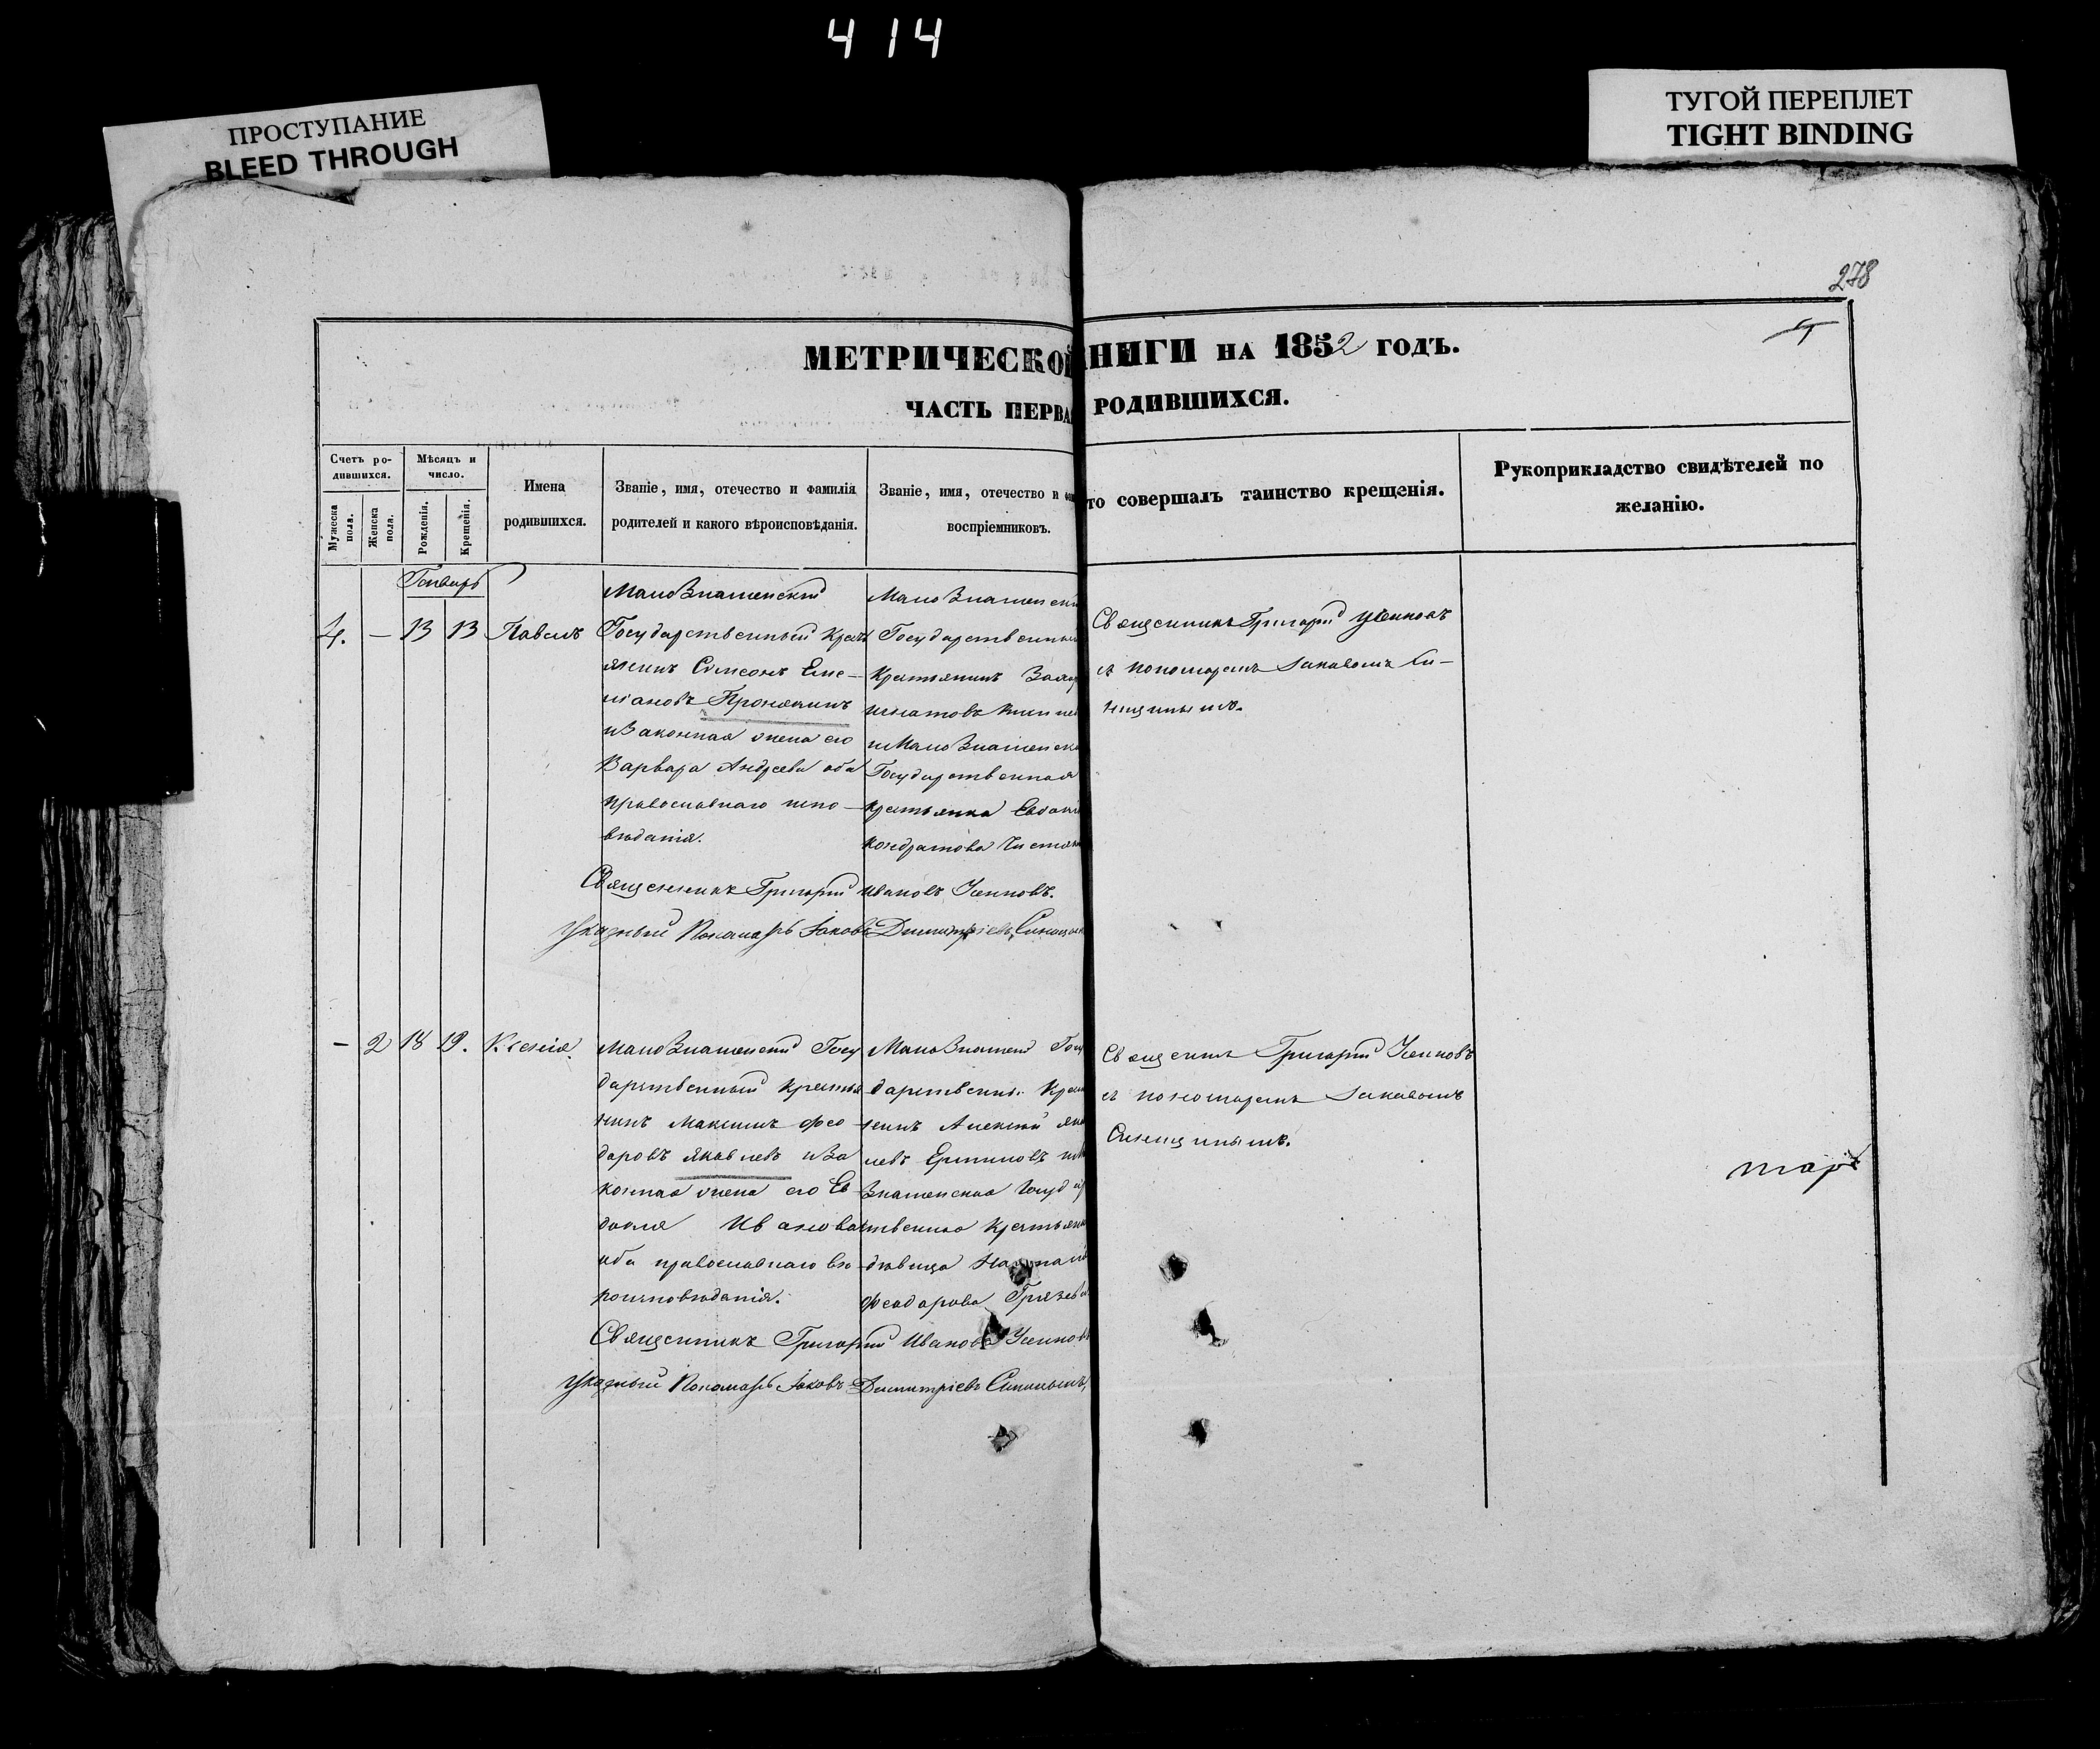 4 14
ПРОСТУПАНИЕ
BLEED THROUGH
ТУГОЙ ПЕРЕПЛЕТ
TIGHT BINDING
278
МЕТРИЧЕСКОЙ НИГИ НА 1852 ГОДЪ.
ЧАСТЬ ПЕРВАЯ РОДИВШИХСЯ.
Счетъ ро-
дившихся.
Мужеска
пола.
Женска
пола.
Мѣсяцъ и
число.
Рожденія.
Крещенія.
Имена
родившихся.
Званіе, имя, отечество и фамилія
родителей и какого вѣроисповѣданія.
Званіе, имя, отечество и
воспріемниковъ.
то совершалъ таинство крещенія.
Рукоприкладство свидѣтелей по
желанію.
Генварь
4. — 13 13 Павелъ
МалоЗнаменскій
Государственный Кресть
янинъ Симеонъ Еме-
ліановъ
иЗаконная жена его
Варвара Андреева оба
православнаго испо-
вѣданія.
МалоЗнаменскі
Государственны
Крестьянинъ
Игнатовъ
иМалоЗнаменска
Государственная
крестьянка Евдокі
Кондратова
Священникъ Григорій
съ пономаремъ Іаковомъ Си-
ницынымъ.
Священникъ Григорій Ивановъ
Указный Пономарь Іаковъ Димитріевъ
— 2 18 19. Ксенія.
МалоЗнаменскій Госу
дарственный крестья
нинъ Максимъ Фео
доровъ Яковлевъ иЗа
конная жена его Ев
докія Иванова
оба православнаго вѣ
роисповѣданія.
МалоЗнаменск Госу
дарственны Крес
нинъ Алексій Яко
левъ
Знаменская Госуда
ственная Крестьянк
дѣвица
Феодорова
Священникъ Григорій
съ пономаремъ Іаковомъ
Синицынымъ.
Священникъ Григорій Ивановъ
Указный Пономарь Іаковъ Димитріевъ